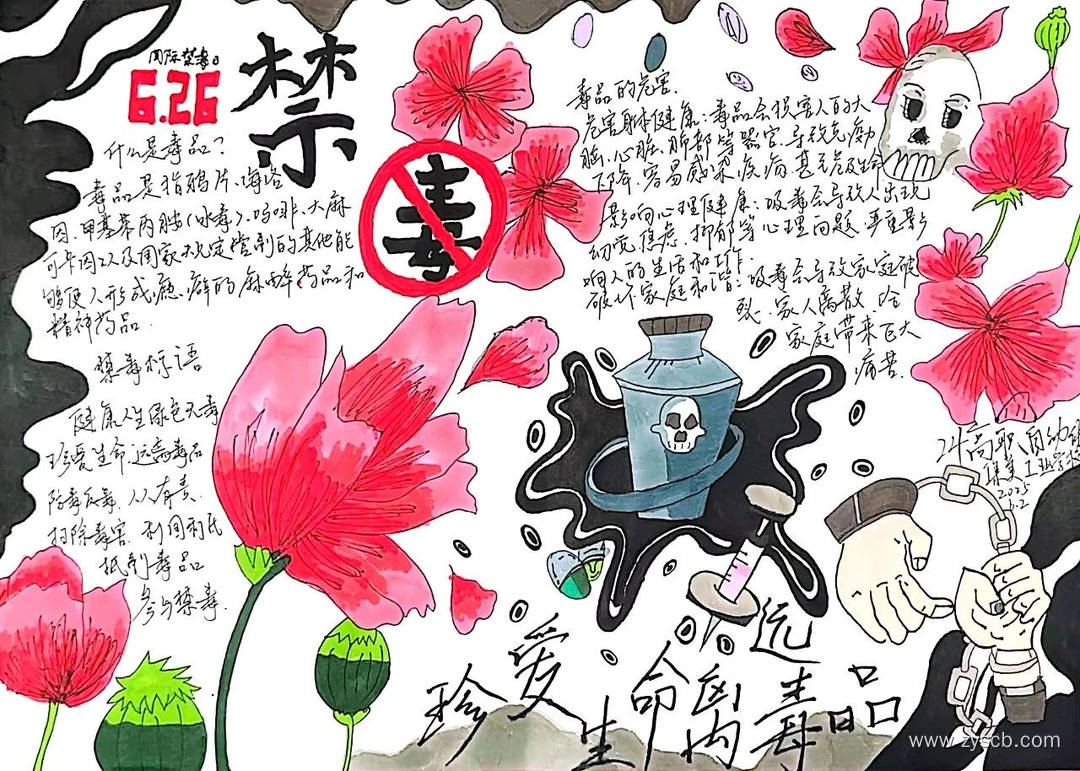 国际禁毒日
6.26
禁
毒
什么是毒品?
毒品是指鸦片、海洛
因、甲基苯丙胺(冰毒)、吗啡、大麻
可卡因以及国家规定管制的其他能
够使人形成瘾癖的麻醉药品和
精神药品.
禁毒标语
健康人生绿色无毒
珍爱生命 远离毒品
防毒反毒、人人有责.
扫除毒害、利国利民
抵制毒品
参与禁毒.
毒品的危害.
危害身体健康:毒品会损害人的大
脑、心脏、肺部等器官.导致免疫力
下降.容易感染疾病.甚至危及生命
影响心理健康:吸毒会导致人出现
幻觉、焦虑、抑郁等心理问题.严重影
响人的生活和工作.
破坏家庭和谐:吸毒会导致家庭破
裂.家人离散 给
家庭带来巨大
痛苦.
24高职
2025
6.2
珍爱生命远离毒品
www.zyscb.com